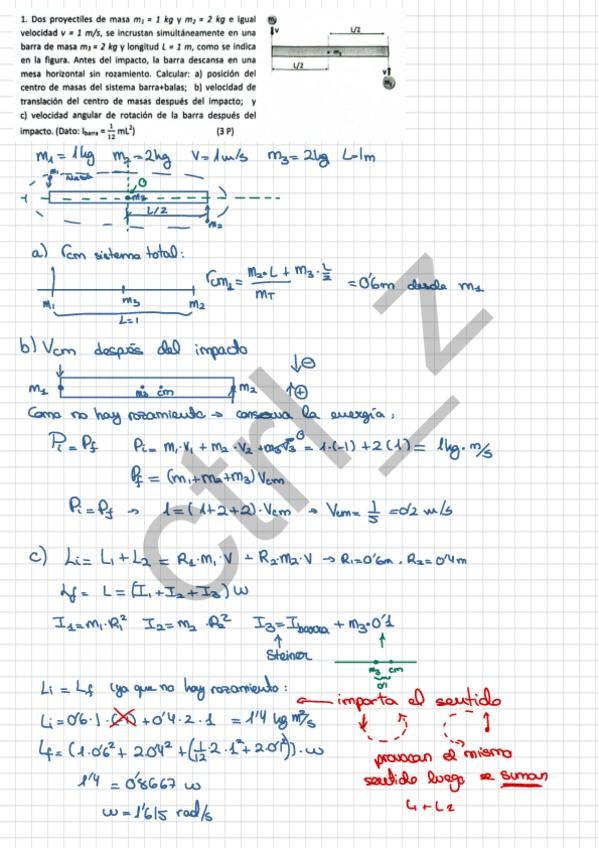 1. Dos proyectiles de masa m₁ = 1 kg y m₂ = 2 kg e igual
velocidad v = 1 m/s, se incrustan simultáneamente en una
barra de masa m₃ = 2 kg y longitud L = 1 m, como se indica
en la figura. Antes del impacto, la barra descansa en una
mesa horizontal sin rozamiento. Calcular: a) posición del
centro de masas del sistema barra+balas; b) velocidad de
translación del centro de masas después del impacto; y
c) velocidad angular de rotación de la barra después del
impacto. (Dato: I_barra = 1/12 mL²) (3 P)
v
L/2
m₃
L/2
v
m₁ = 1kg m₂ = 2kg V = 1m/s m₃ = 2kg L=1m
O
m₃
L/2
m₂
a) r_cm sistema total:
r_cm₁ = (m₂·L + m₃·L/2)/m_T = 0'6m desde m₁
m₁ m₃ m₂
L=1
b) V_cm después del impacto
m₁ m₃ cm m₂
⊖
⊕
Como no hay rozamiento → conserva la energía:
Pi = Pf Pi = m₁·V₁ + m₂·V₂ + m₃V₃ 0 = 1·(-1) + 2(1) = 1kg·m/s
Pf = (m₁+m₂+m₃) Vcm
Pi = Pf → 1 = (1+2+2)·Vcm → Vcm = 1/5 = 0'2 m/s
c) Li = L₁ + L₂ = R₁·m₁·V + R₂·m₂·V → R₁=0'6m, R₂=0'4m
Lf = L = (I₁ + I₂ + I₃) ω
I₁ = m₁·R₁² I₂ = m₂·R₂² I₃ = I_barra + m₃·0'1
Steiner
m₃ cm
0'1
Li = Lf (ya que no hay rozamiento:
importa el sentido
Li = 0'6·1· + 0'4·2·1 = 1'4 kg m²/s
Lf = (1·0'6² + 2·0'4² + (1/12·2·1² + 2·0'1²))·ω
provocan el mismo
sentido luego se suman
1'4 = 0'8667 ω
L₁+L₂
ω = 1'615 rad/s
ctrl_z